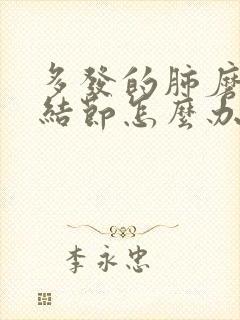 多發的肺磨
結節怎麼办
李永忠